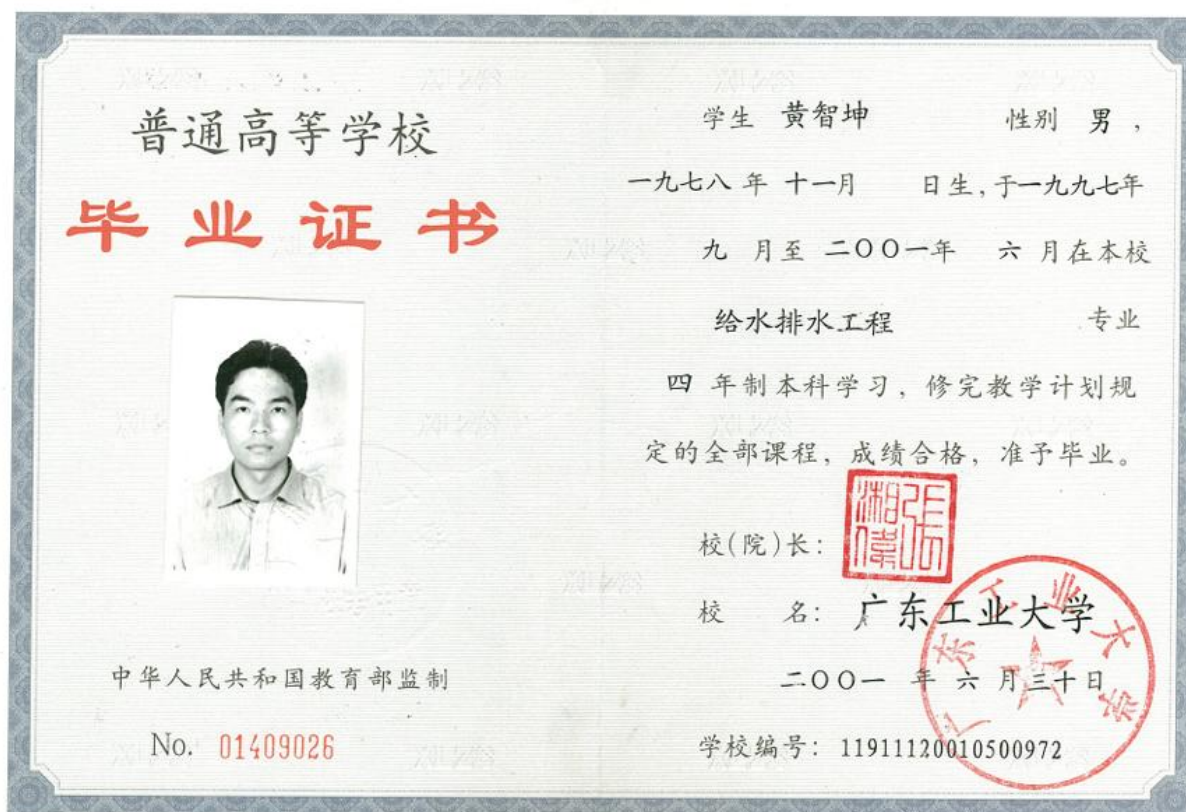 普通高等学校
毕业证书
中华人民共和国教育部监制
No. 01409026
学生 黄智坤 性别 男，
一九七八 年 十一月 日生，于一九九七年
九 月至 二〇〇一年 六 月在本校
给水排水工程 专业
四 年制本科学习，修完教学计划规
定的全部课程，成绩合格，准予毕业。
校(院)长：
张湘伟
校 名： 广东工业大学
二〇〇一 年 六 月三十日
学校编号： 11911120010500972
广东工业大学